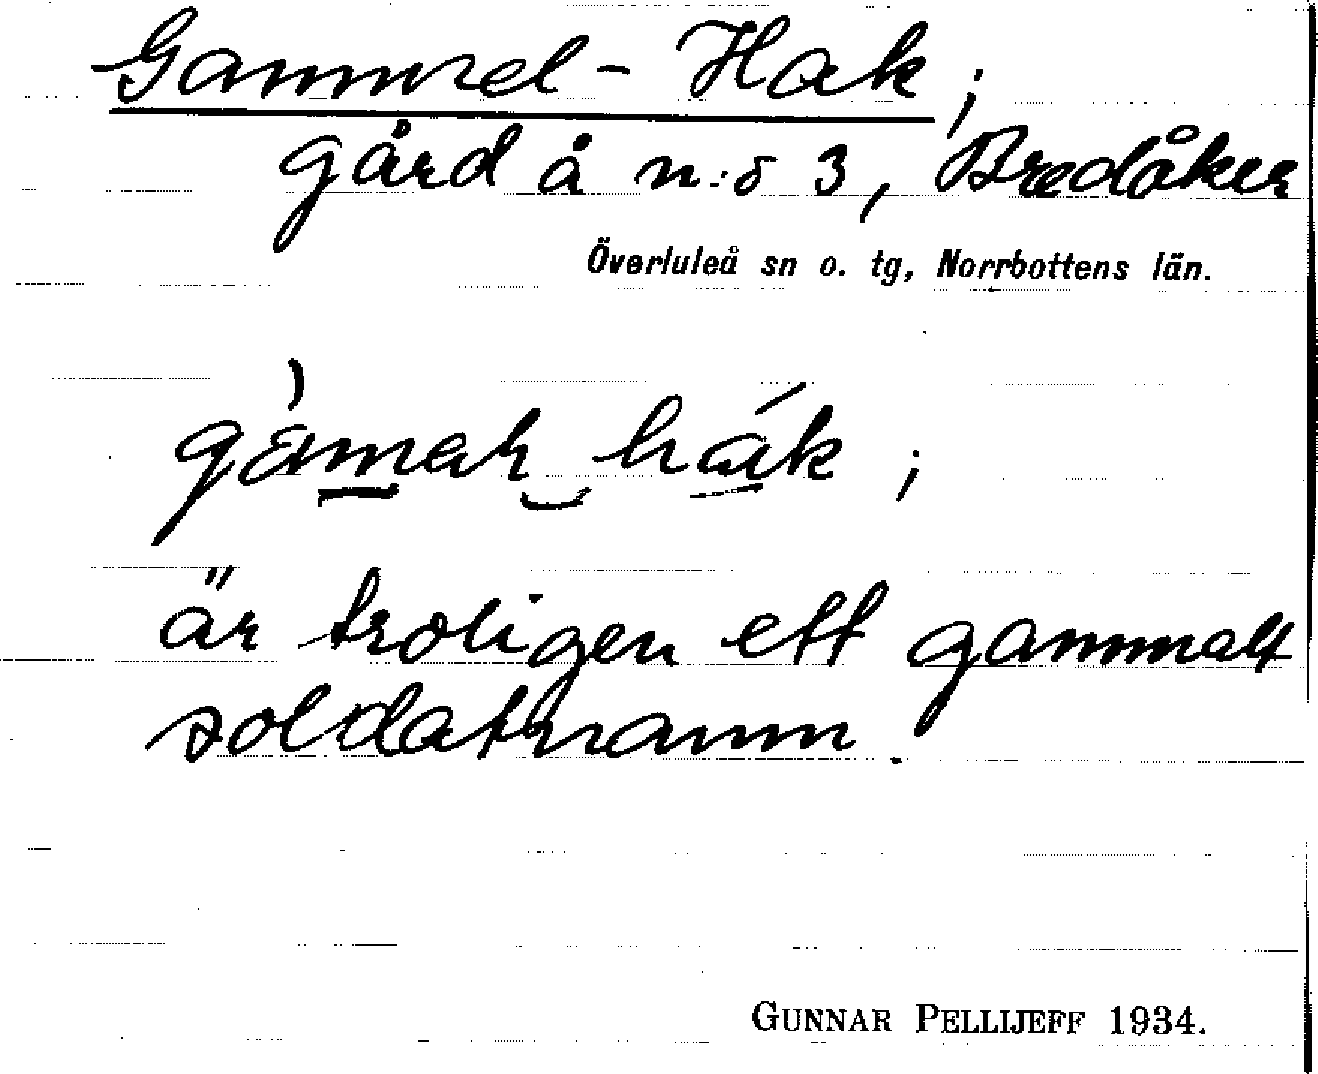 Gammel-Hak;
gård å n:o 3, Bredåker
Överluleå sn o. tg, Norrbottens län.
hák;
är troligen ett gammalt
soldatnamn.
GUNNAR PELLIJEFF 1934.